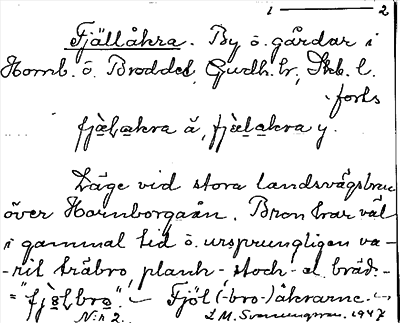 1 — 2
Fjällåkra. By ö. gårdar i
Hornb. ö. Broddet, Gudh. hr, Skb. l.
forts
fjæl̲a̲kra ä, fjæl̲a̲kra y.
Läge vid stora landsvägsbron
över Hornborgaån. Bron har väl
i gammal tid ö. ursprungligen va-
-rit träbro, plank- stock- el. bräd.-
= "fjo̲lbro̲". — Fjöl (-bro-) åkrarne.
N:o 2. 1947